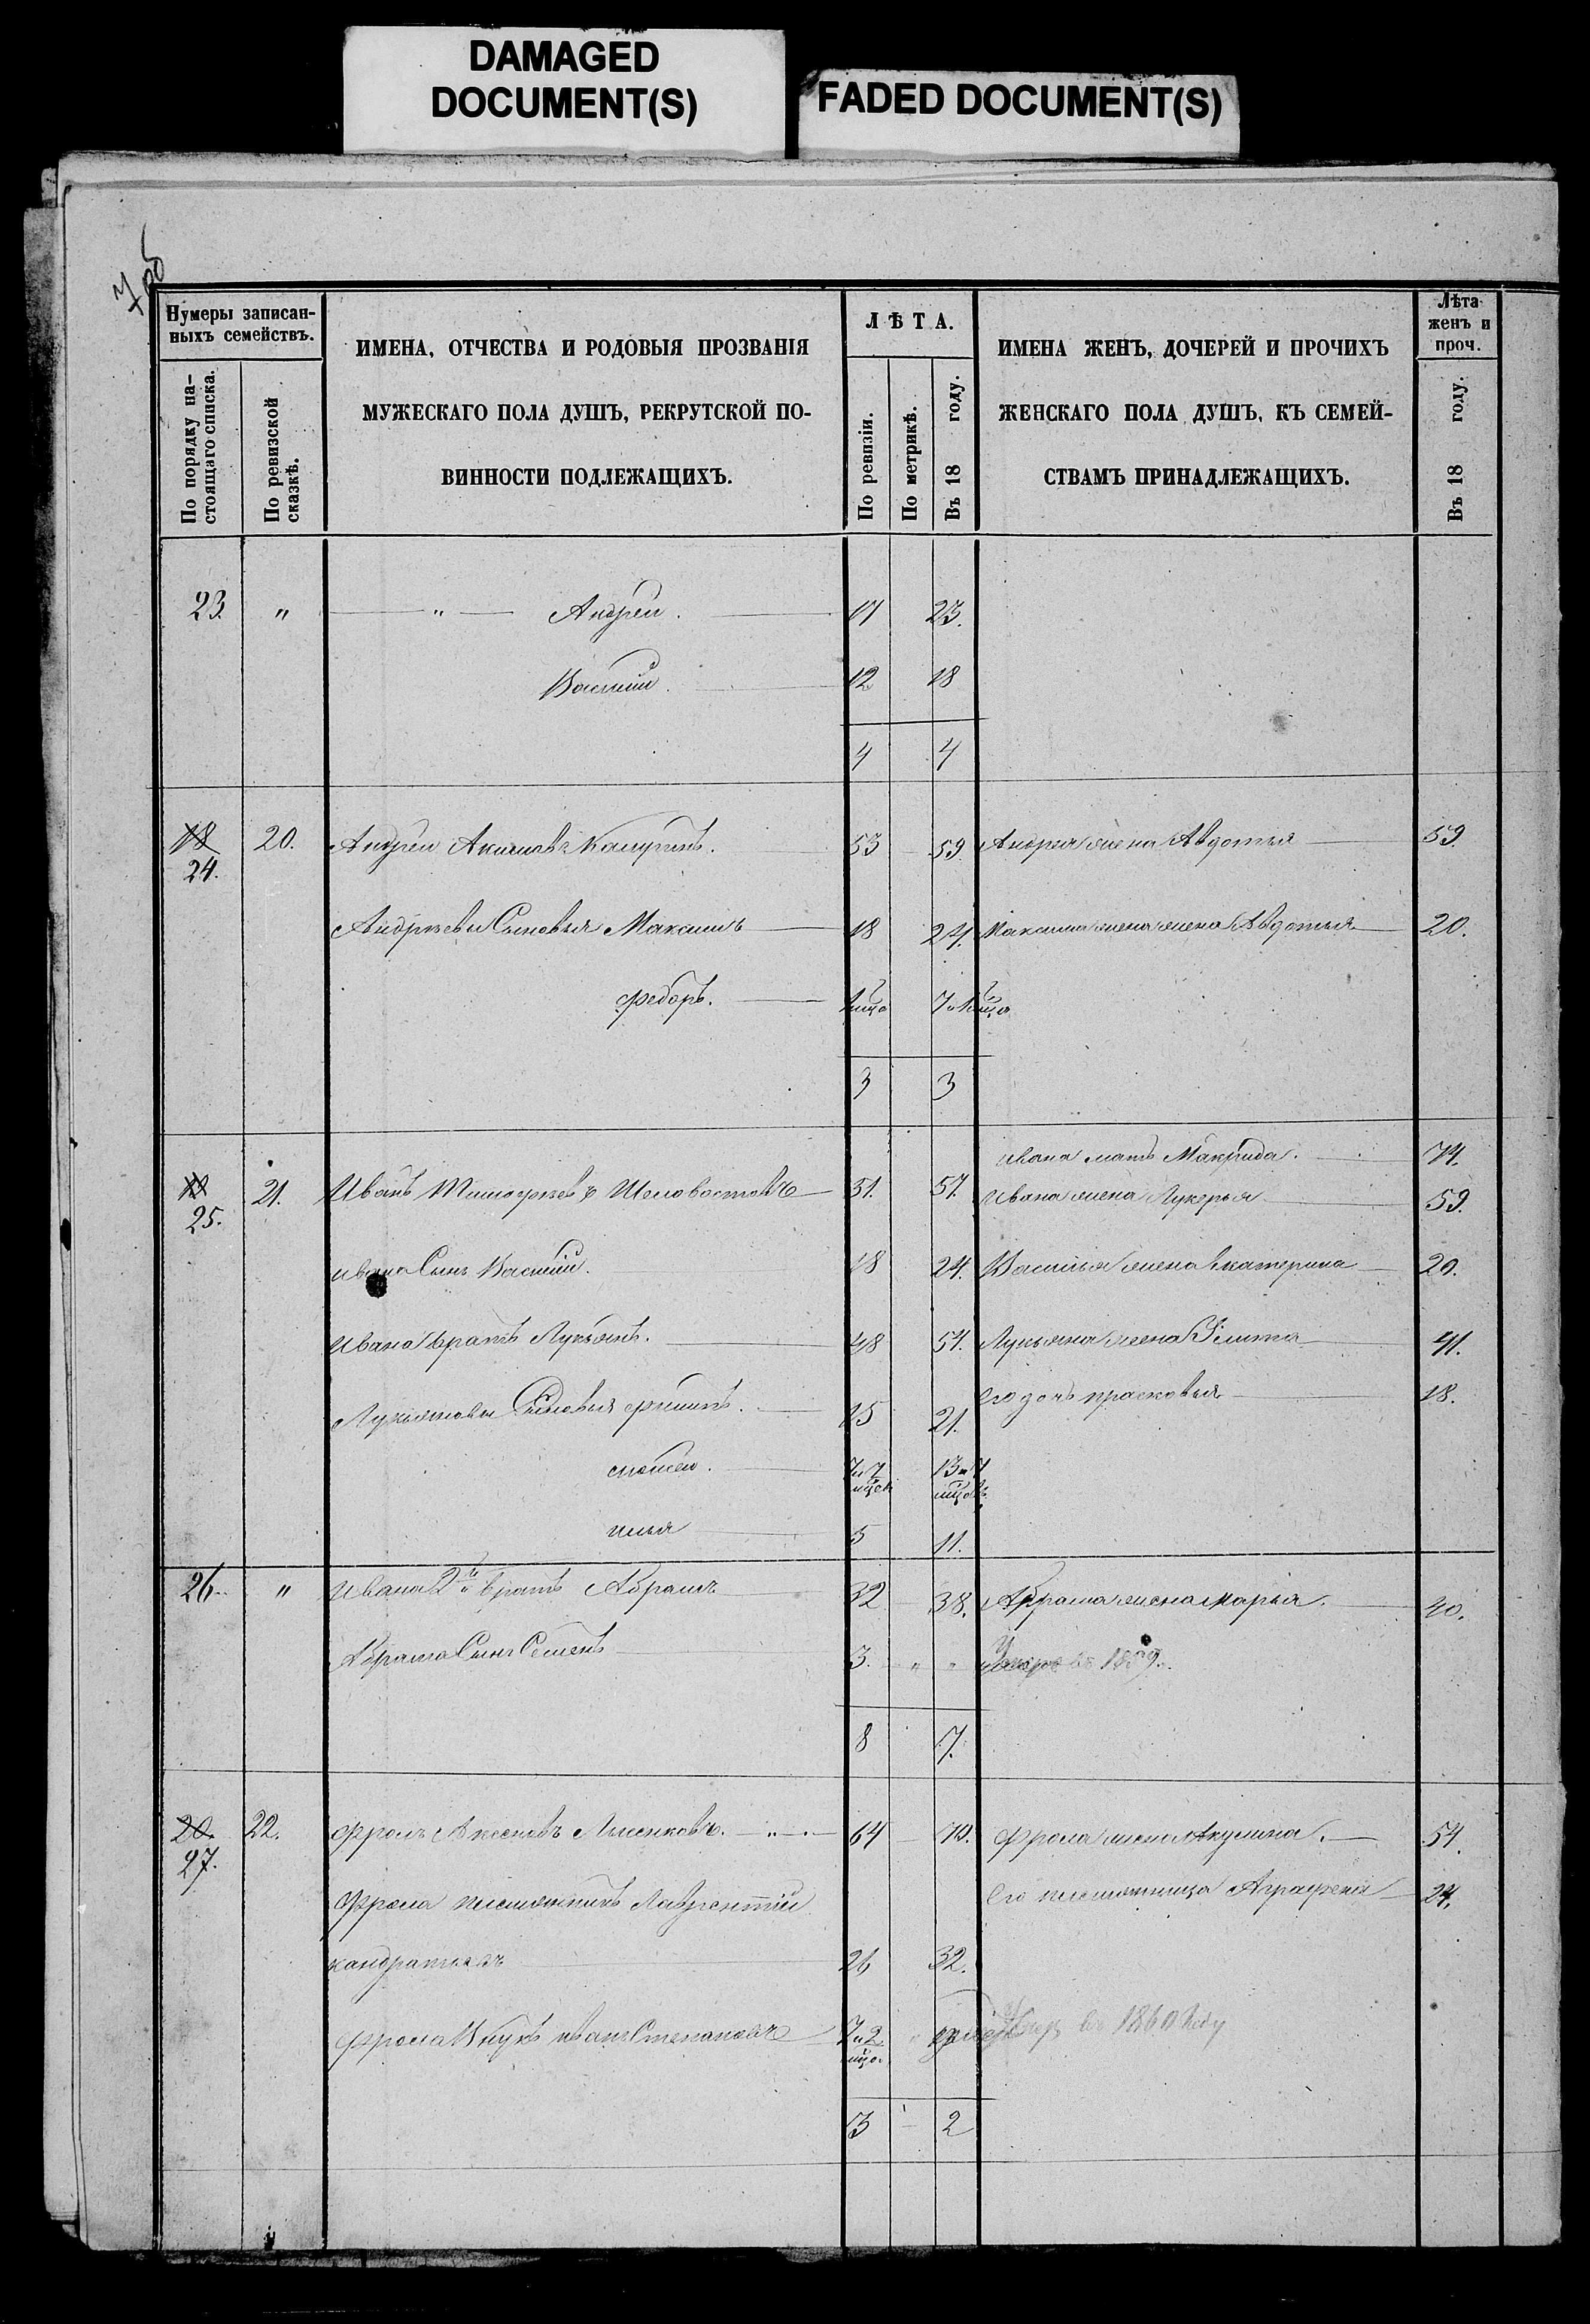 DAMAGED
DOCUMENT(S)
FADED DOCUMENT(S)
7об
Нумеры записан-
ныхъ семействъ.
По порядку на-
стоящаго списка.
По ревизской
сказкѣ.
ИМЕНА, ОТЧЕСТВА И РОДОВЫЯ ПРОЗВАНІЯ
МУЖЕСКАГО ПОЛА ДУШЪ, РЕКРУТСКОЙ ПО-
ВИННОСТИ ПОДЛЕЖАЩИХЪ.
ЛѢТА.
По ревизіи.
По метрикѣ.
Въ 18 году.
ИМЕНА ЖЕНЪ, ДОЧЕРЕЙ И ПРОЧИХЪ
ЖЕНСКАГО ПОЛА ДУШЪ, КЪ СЕМЕЙ-
СТВАМЪ ПРИНАДЛЕЖАЩИХЪ.
Лѣта
женъ и
проч.
Въ 18 году.
23. " " Андрей. 17 23.
Василий. 12 18
4 4
18 20. Андрей Акимовъ 53 59. Андрея жена Авдотья 59.
24.
Андреевы Сыновья Максимъ 18 24. Максима жена жена Авдотья 20.
Федоръ.
3 3
Ивана мать Макрида. 74.
21. Иванъ 51. 57 Ивана жена Лукерья 59.
25.
Ивана Сынъ Василий. 18 24. Василья жена Екатерина 20.
Ивана братъ Лукьянъ. 48 54. Лукьяна жена 41.
Его дочь прасковья 18.
Лукьяновы Сыновья филипъ. 15 21.
7 и 7 13 и 7
мѣсев
илья 5 11.
26 " Ивана 2й братъ Абрамъ 32 38. Абрама жена марья. 40.
Абрама Сынъ Семенъ 3. " " Умеръ въ 1859.
8 7.
20. 22. Фролъ Аксеновъ Лысенковъ. 64 70. Фрола жена Акулина. 54.
27.
Его племянница Аграфена 24.
Фрола племянникъ Лаврентий
кандратьевъ 26 32.
Фрола Внукъ иванъ Степановъ 7 и 2 умеръ въ 1860 Году
3 2